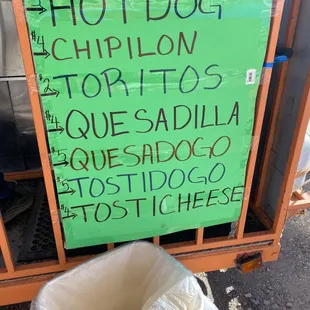 HOT DOG
$4 → CHIPILON
$2 → TORITOS
$4 → QUESADILLA
$5 → QUESADOGO
→ TOSTIDOGO
$4 → TOSTICHEESE